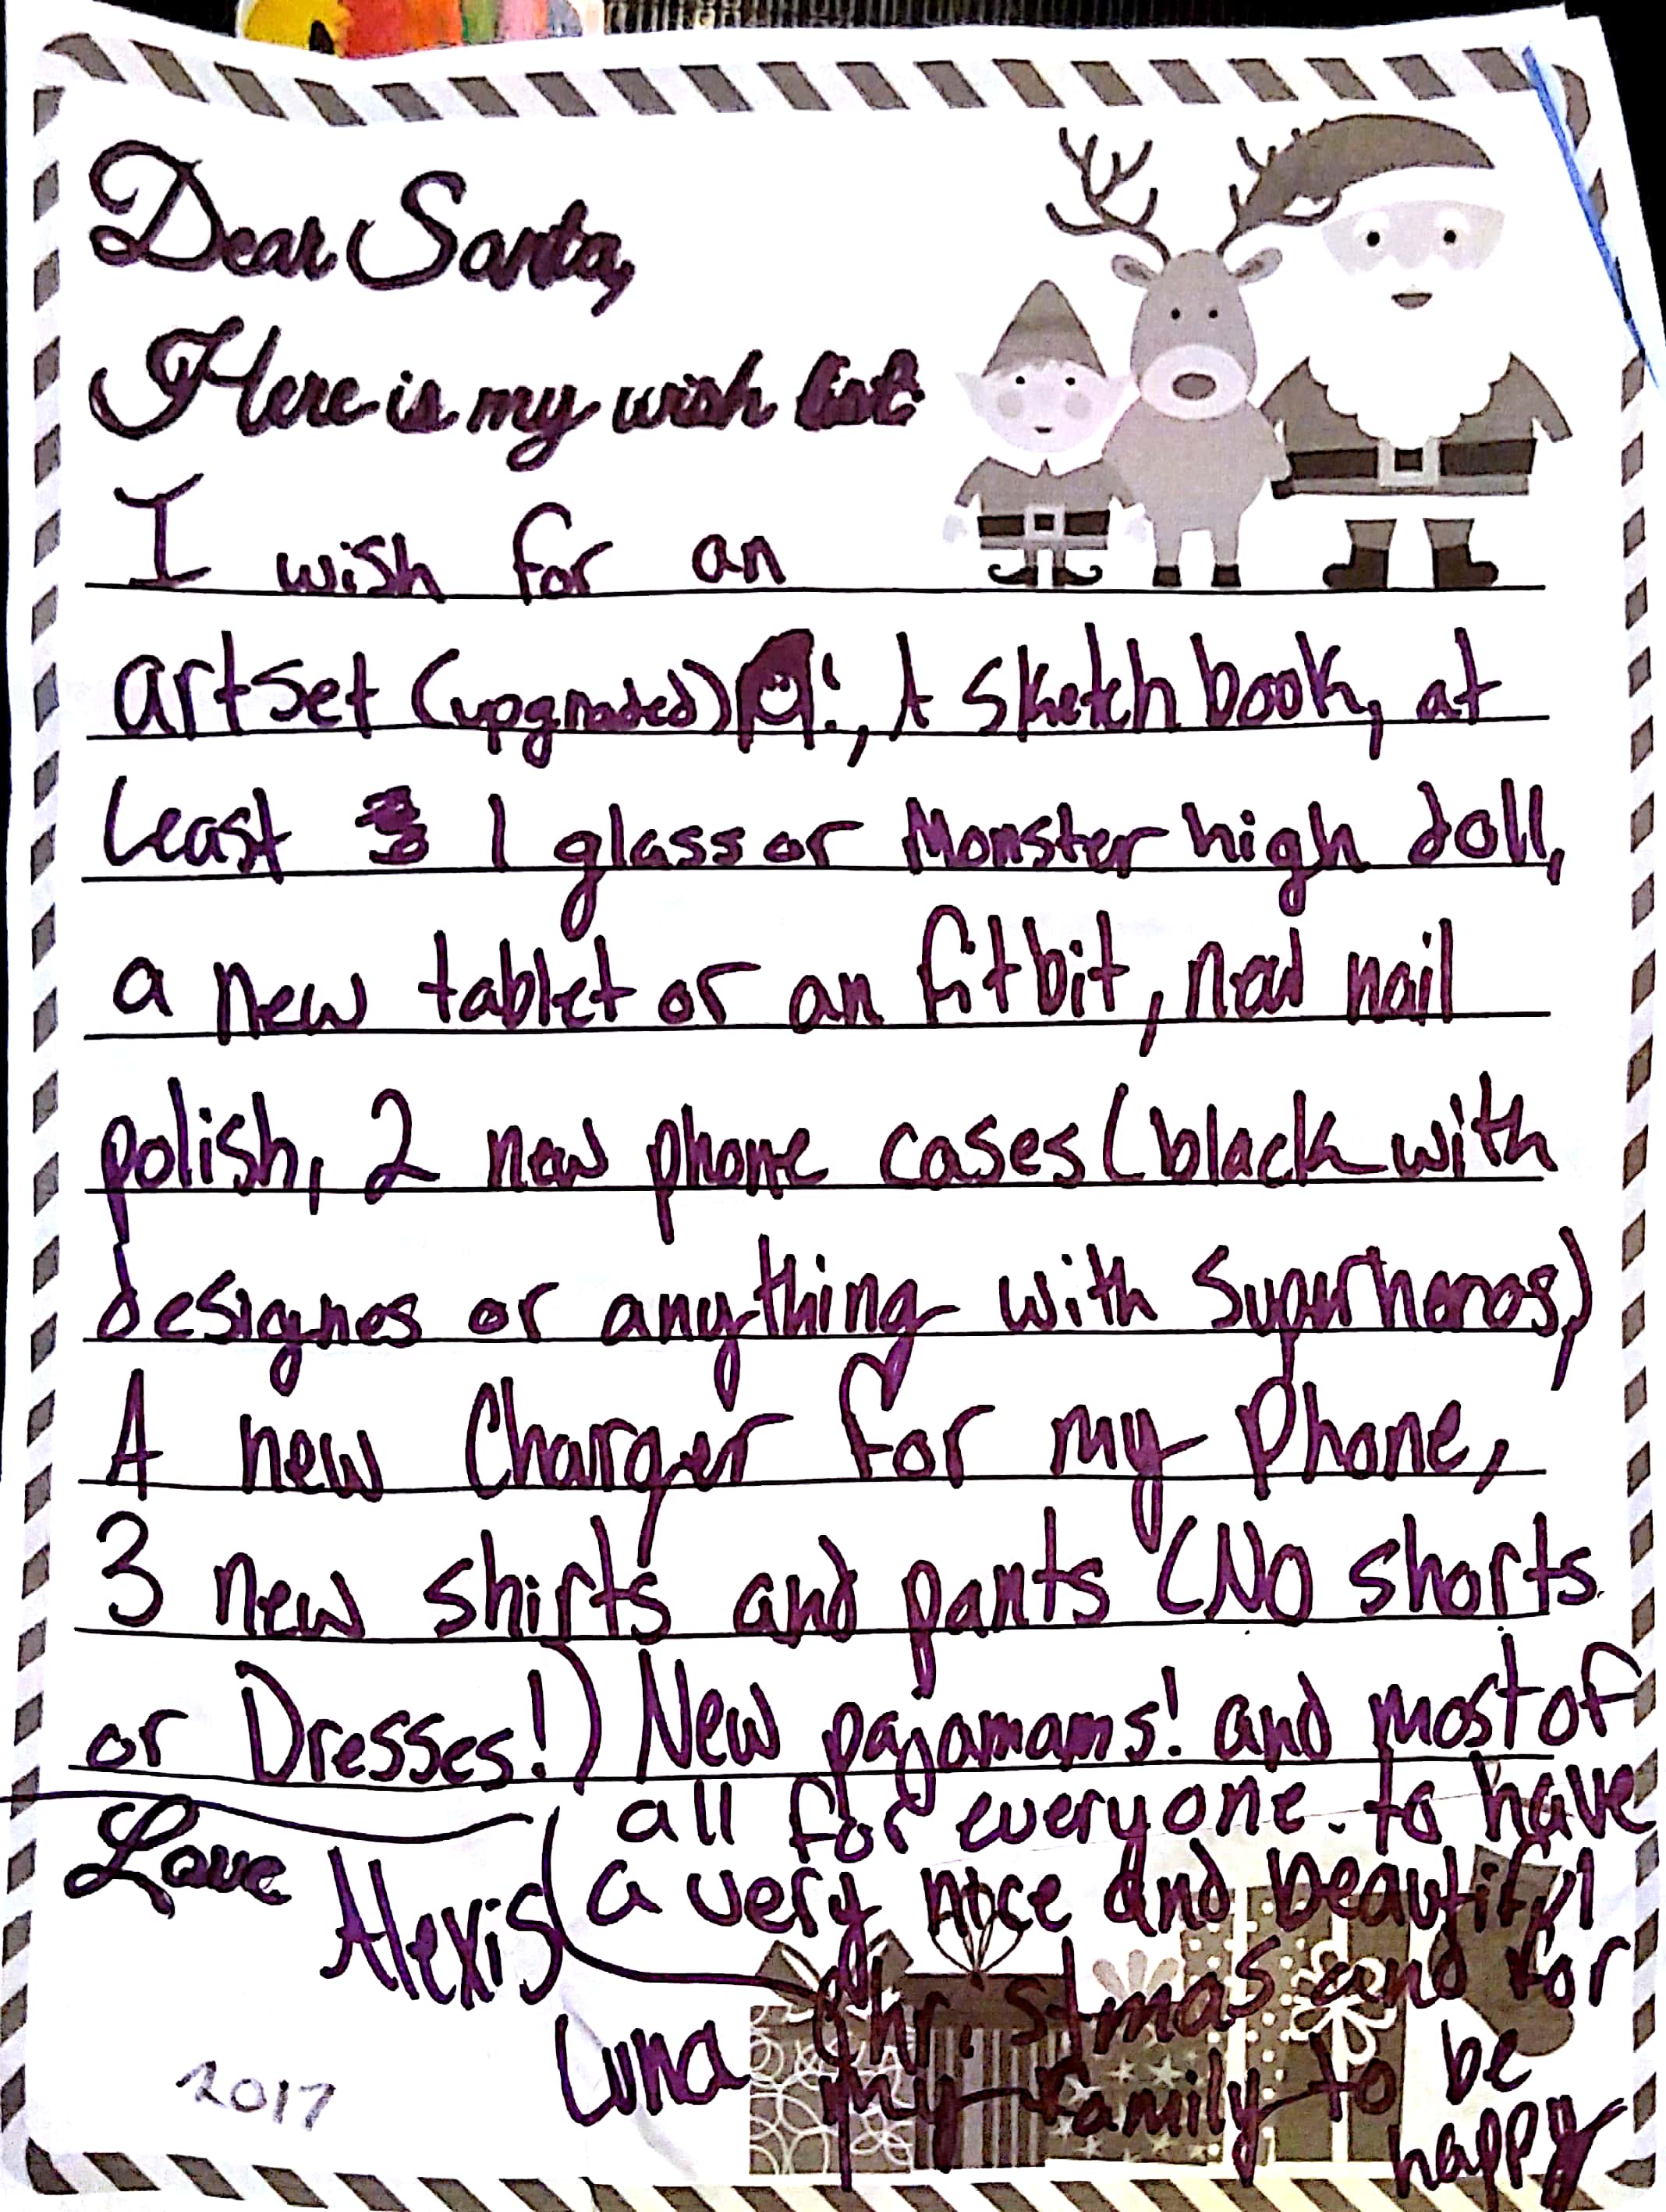 Dear Santa,
Here is my wish list:
I wish for an
artset (upgraded) !, A sketch book, at
Least 1 glass or Monster high doll,
a new tablet or an fitbit, new nail
polish, 2 new phone cases (black with
designes or anything with Superheros,)
A new Charger for my Phone,
3 new shirts and pants (No shorts
or Dresses!) New pajamams! and most of
all for everyone to have
a very nice and beautiful
Christmas and for
my family to be
happy
Love
Alexis
Luna
2017